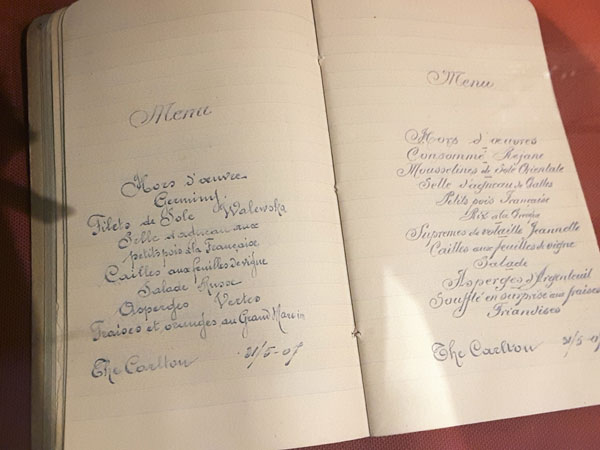 Menu
Hors d'œuvre
Germiny
Filets de Sole Walewska
Selle d'agneau aux
petits pois à la Française
Cailles aux feuilles de vigne
Salade Russe
Asperges Vertes
Fraises et oranges au Grand Marnin
The Carlton 21/5-07
Menu
Hors d'œuvres
Consommé Rejane
Mousselines de sole Orientale
Selle d'agneau de Galles
Petits pois Française
Riz à la
Supremes de volaille Jeannette
Cailles aux feuilles de vigne
Salade
Asperges d'Argenteuil
Soufflé en surprise aux fraises
Friandises
The Carlton 21/5-07